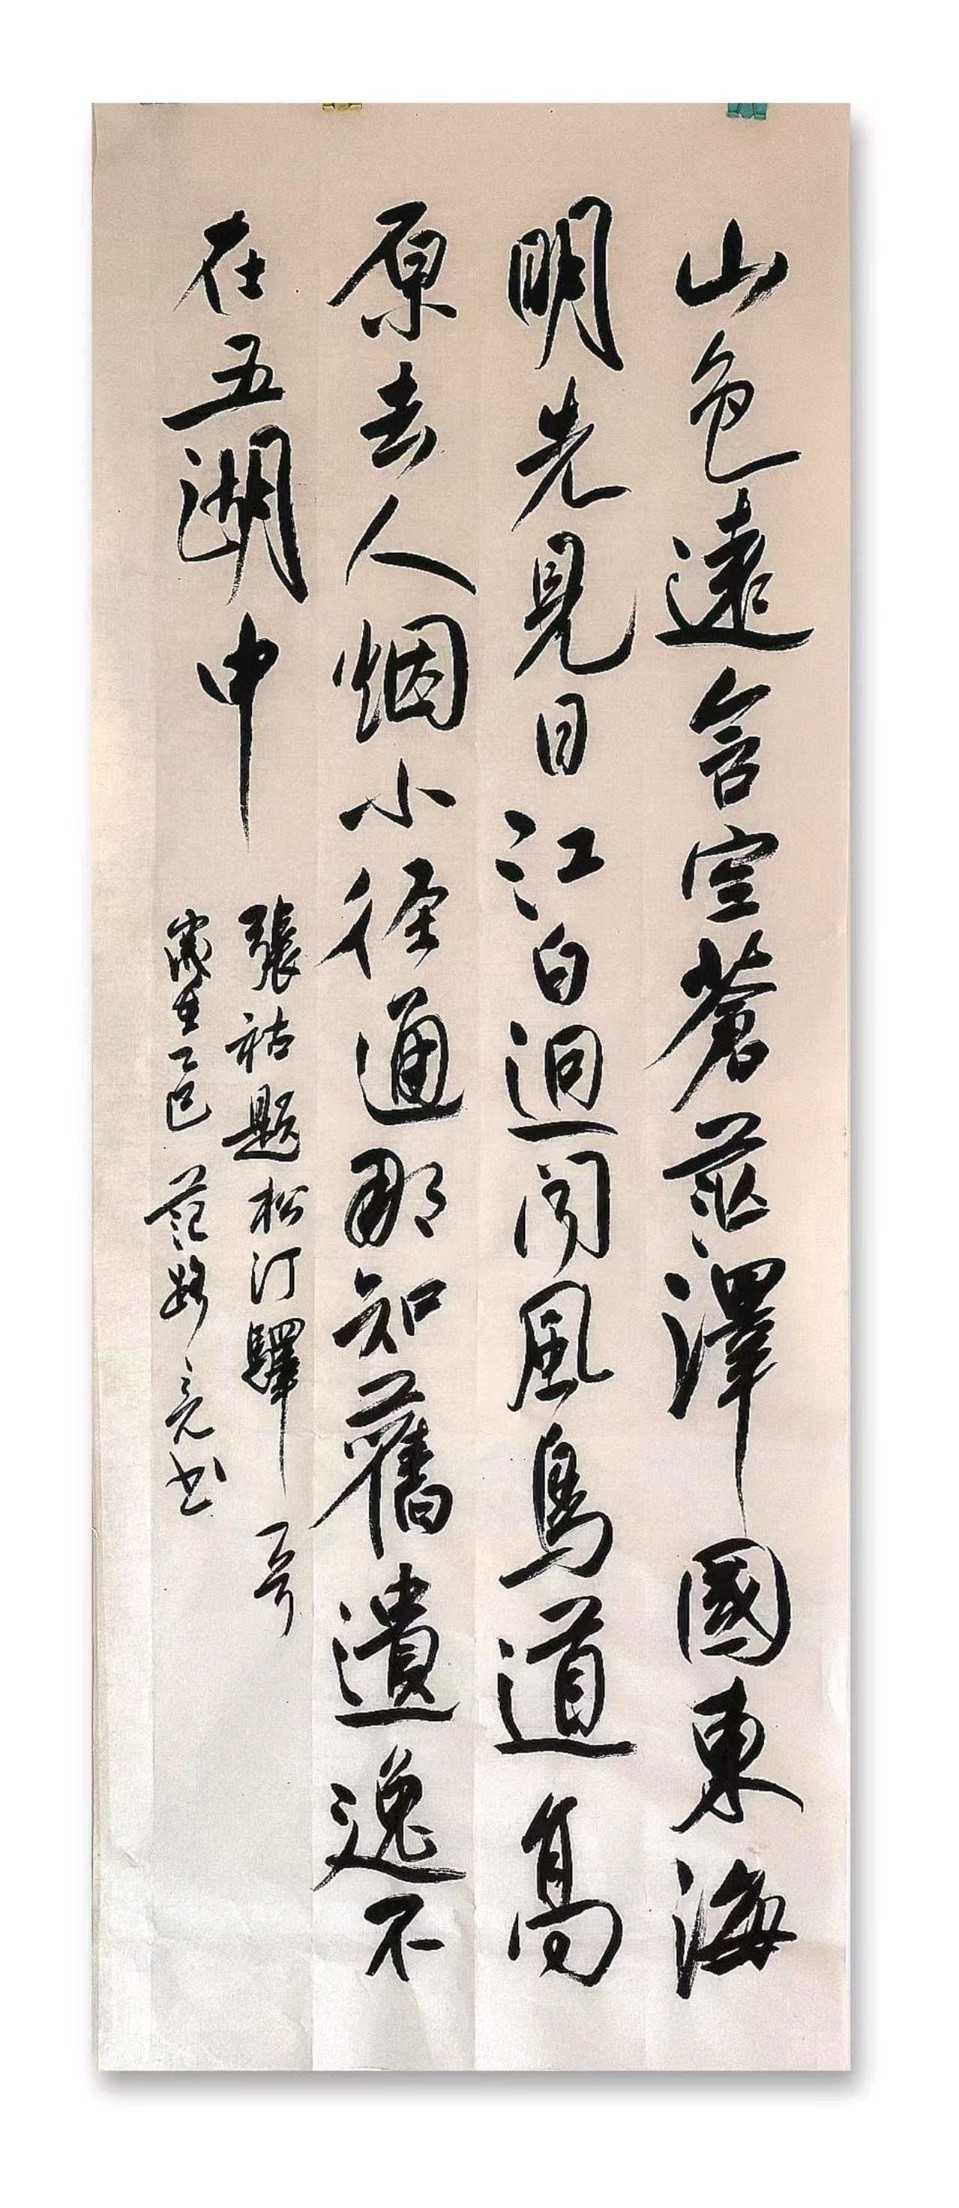 山色遠含空蒼茫澤國東海
明先見日江白迥聞風鳥道高
原去人烟小徑通那知舊遺逸不
在五湖中
張祜題松汀驛
歲在乙巳 范亮书